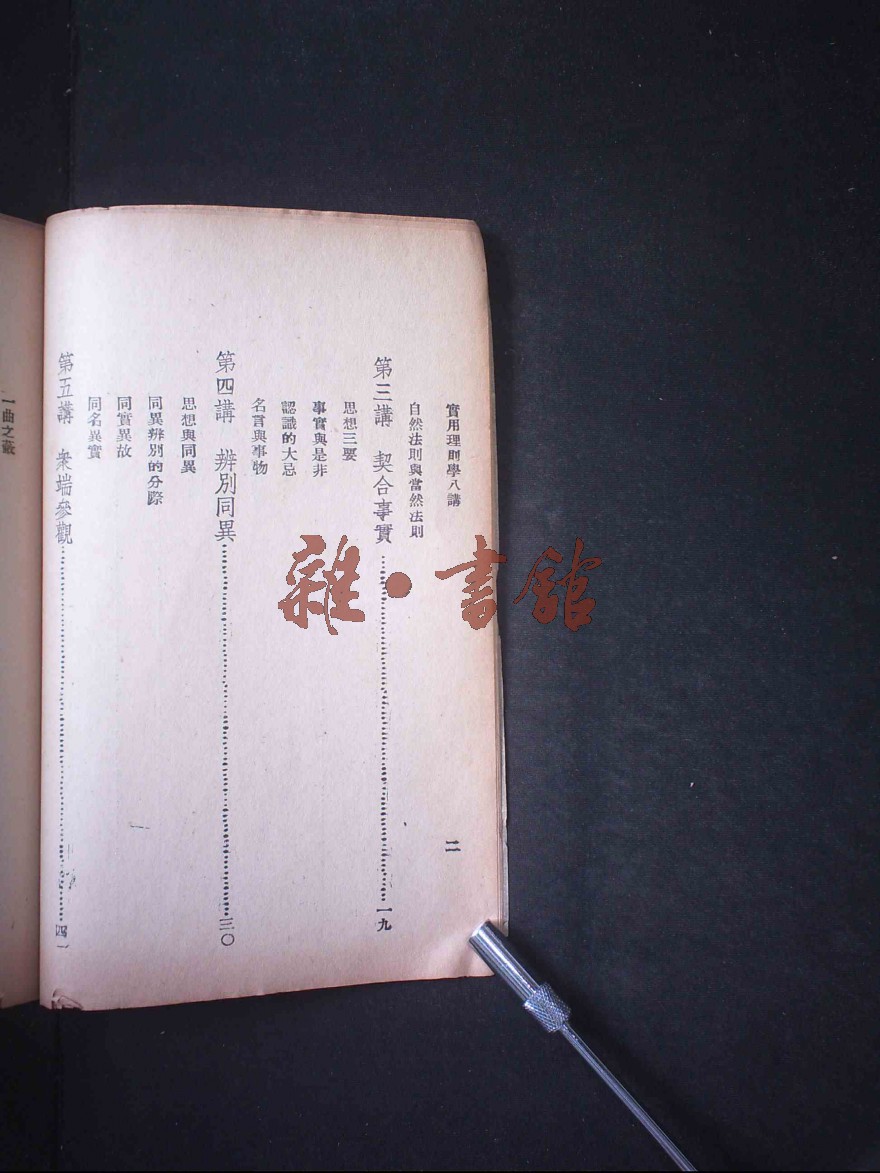 實用理則學八講
二
自然法則與當然法則
第三講 契合事實……一九
思想三要
事實與是非
認識的大忌
名言與事物
第四講 辨別同異……三〇
思想與同異
同異辨別的分際
同實異故
同名異實
第五講 衆端參觀……四一
一曲之蔽
雜·書館